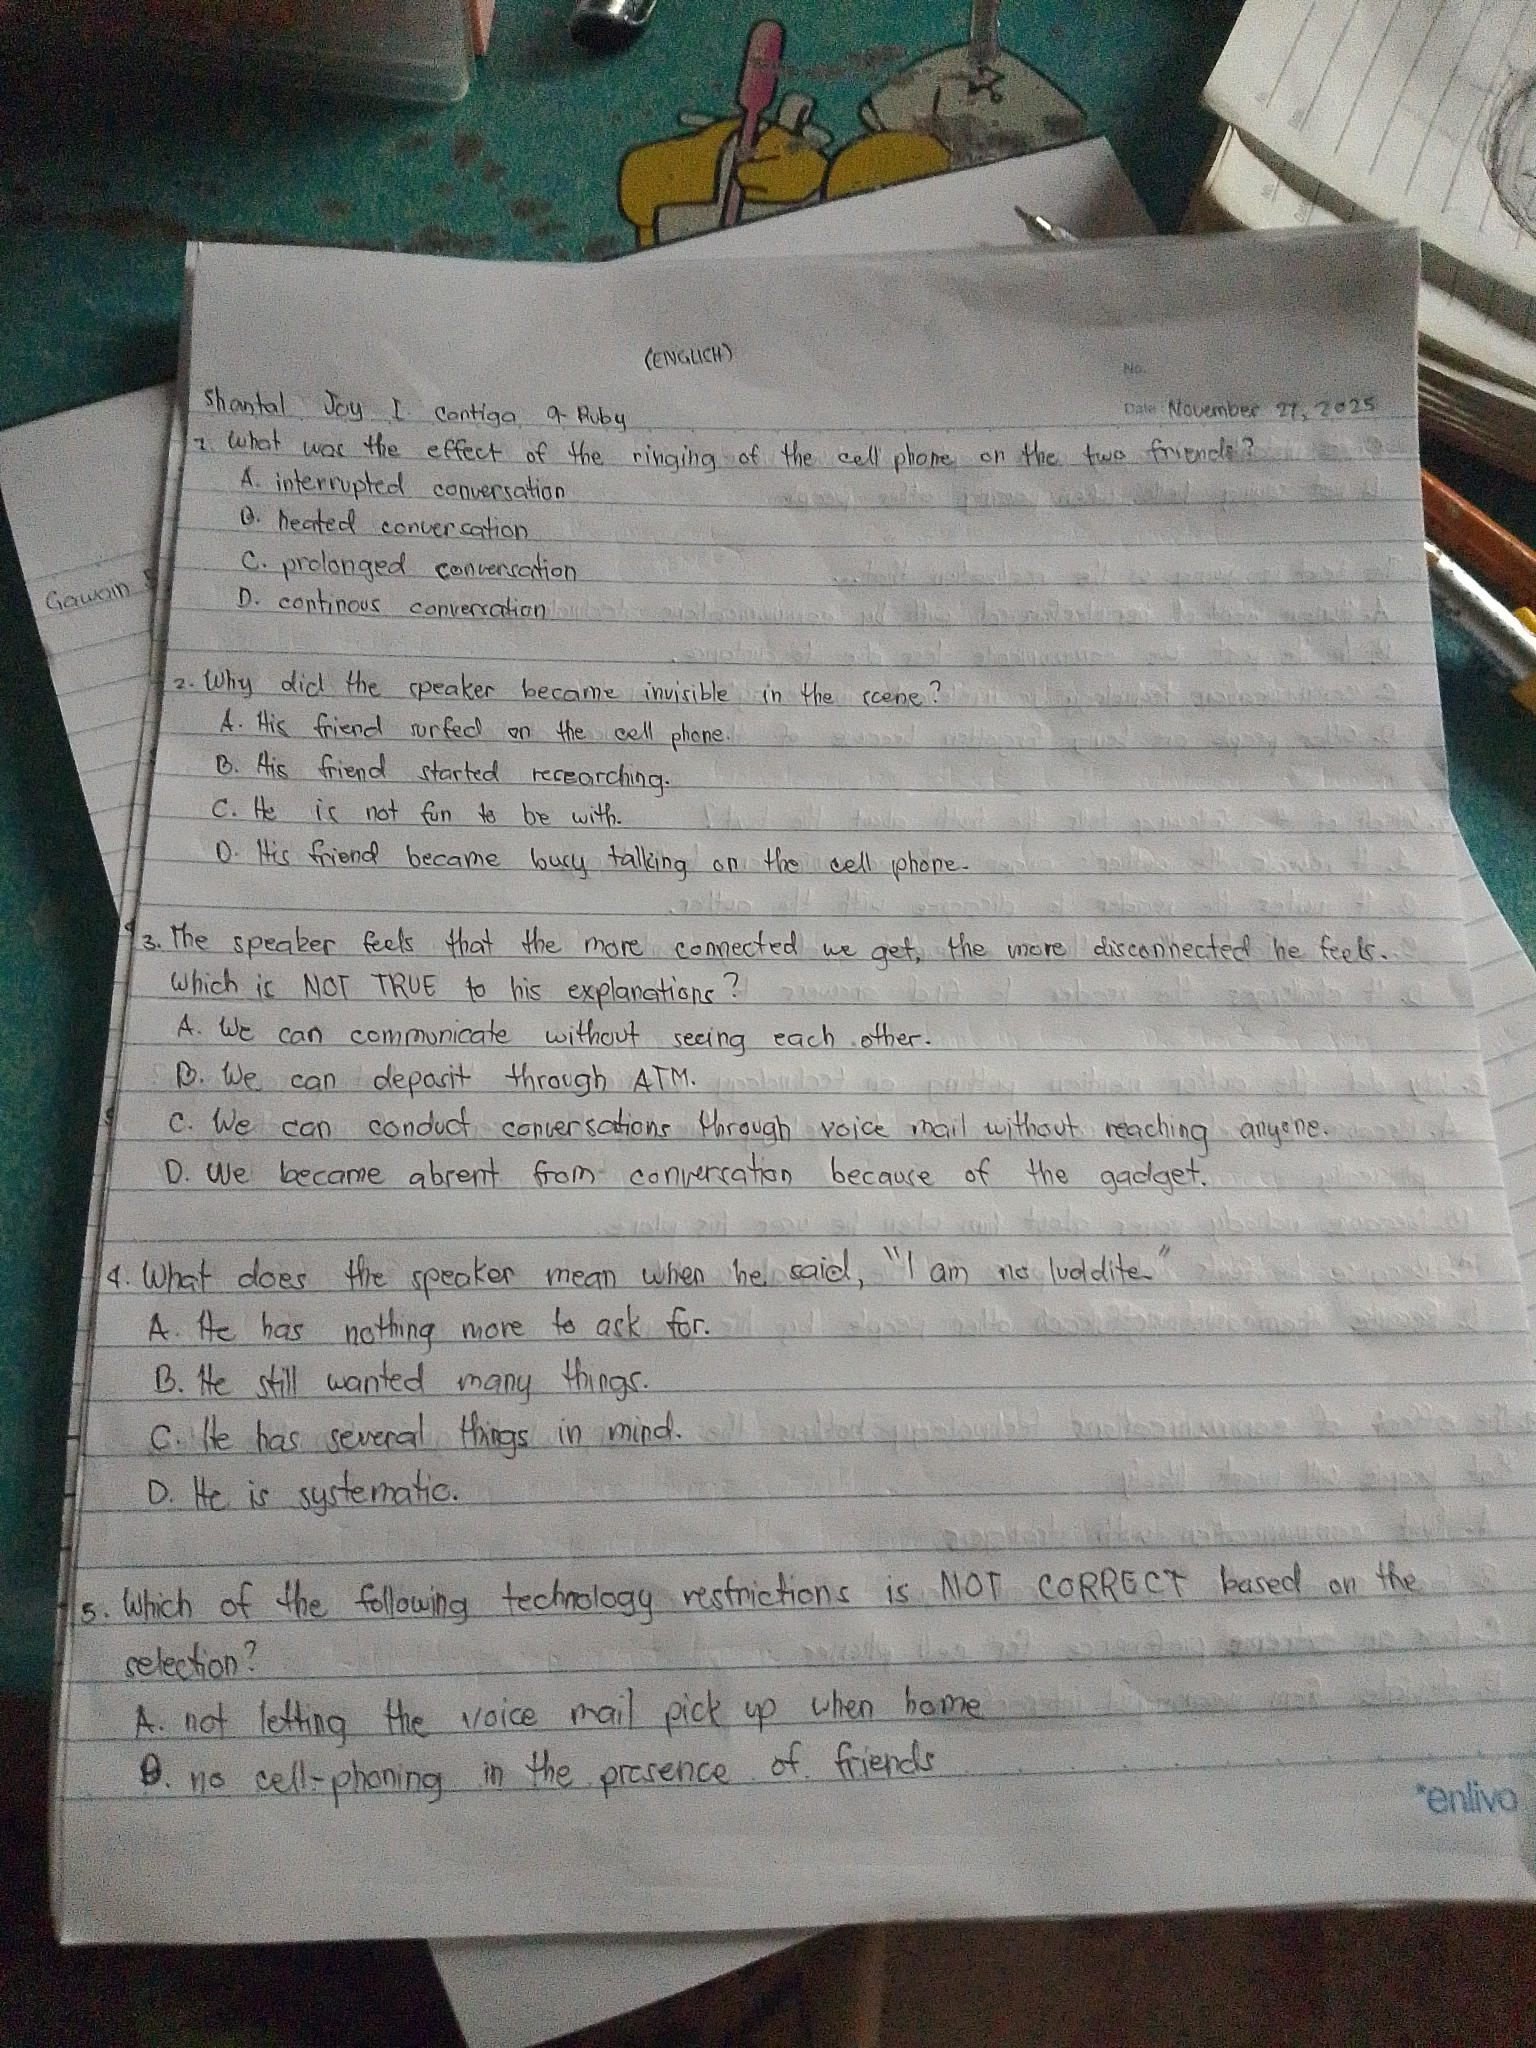 (ENGLICH)
No.
Shantal Joy I. Contiga 9-Ruby
Date: November 27, 2025
1. What was the effect of the ringing of the cell phone on the two friends?
A. interrupted conversation
B. heated conversation
C. prolonged conversation
D. continous conversation
Gawain
2. Why did the speaker became invisible in the scene?
A. His friend surfed on the cell phone.
B. His friend started researching.
C. He is not fun to be with.
D. His friend became busy talking on the cell phone.
3. The speaker feels that the more connected we get, the more disconnected he feels.
Which is NOT TRUE to his explanations?
A. We can communicate without seeing each other.
B. We can deposit through ATM.
C. We can conduct conversations through voice mail without reaching anyone.
D. We became absent from conversation because of the gadget.
4. What does the speaker mean when he said, "I am no luddite"
A. He has nothing more to ask for.
B. He still wanted many things.
C. He has several things in mind.
D. He is systematic.
5. Which of the following technology restrictions is NOT CORRECT based on the
selection?
A. not letting the voice mail pick up when home
B. no cell-phoning in the presence of friends
enlivo